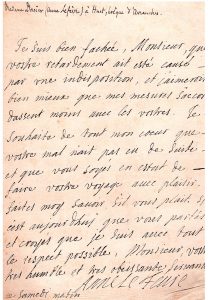 Madame Dacier (Anne Lefèvre) à Huet, évêque d'Avranches.
Je suis bien fachée, Monsieur, que
vostre retardement ait esté causé
par vne indisposition, et j'aimerois
bien mieux que mes mesures s'accor
dassent moins avec les vostres. Je
souhaite de tout mon coeur que
vostre mal n'ait pas eu de suite
et que vous soyez en estat de
faire vostre voyage avec plaisir,
faites moy sçavoir s'il vous plaist si
c'est aujourdhui que vous partés
et croyés que je suis avec tout
le respect possible, Monsieur, vostre
tres humble et tres obeissante servante
Anne Le Fevre
ce samedi matin